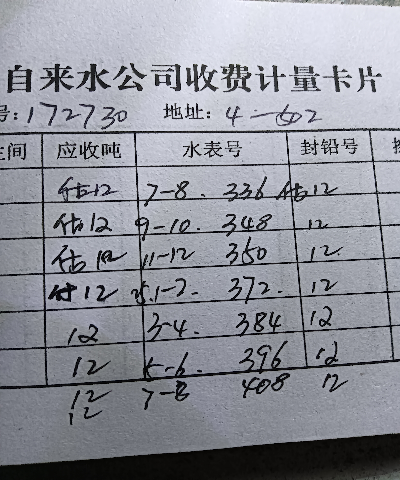 自来水公司收费计量卡片
号:172730 地址:4-602
应收吨 水表号 封铅号
估12 7-8. 336 估12
估12 9-10. 348 12
估12 11-12 350 12.
估12 25.1-2. 372. 12
12 3-4. 384 12
12 5-6. 396 12
12 7-8 408 12
12